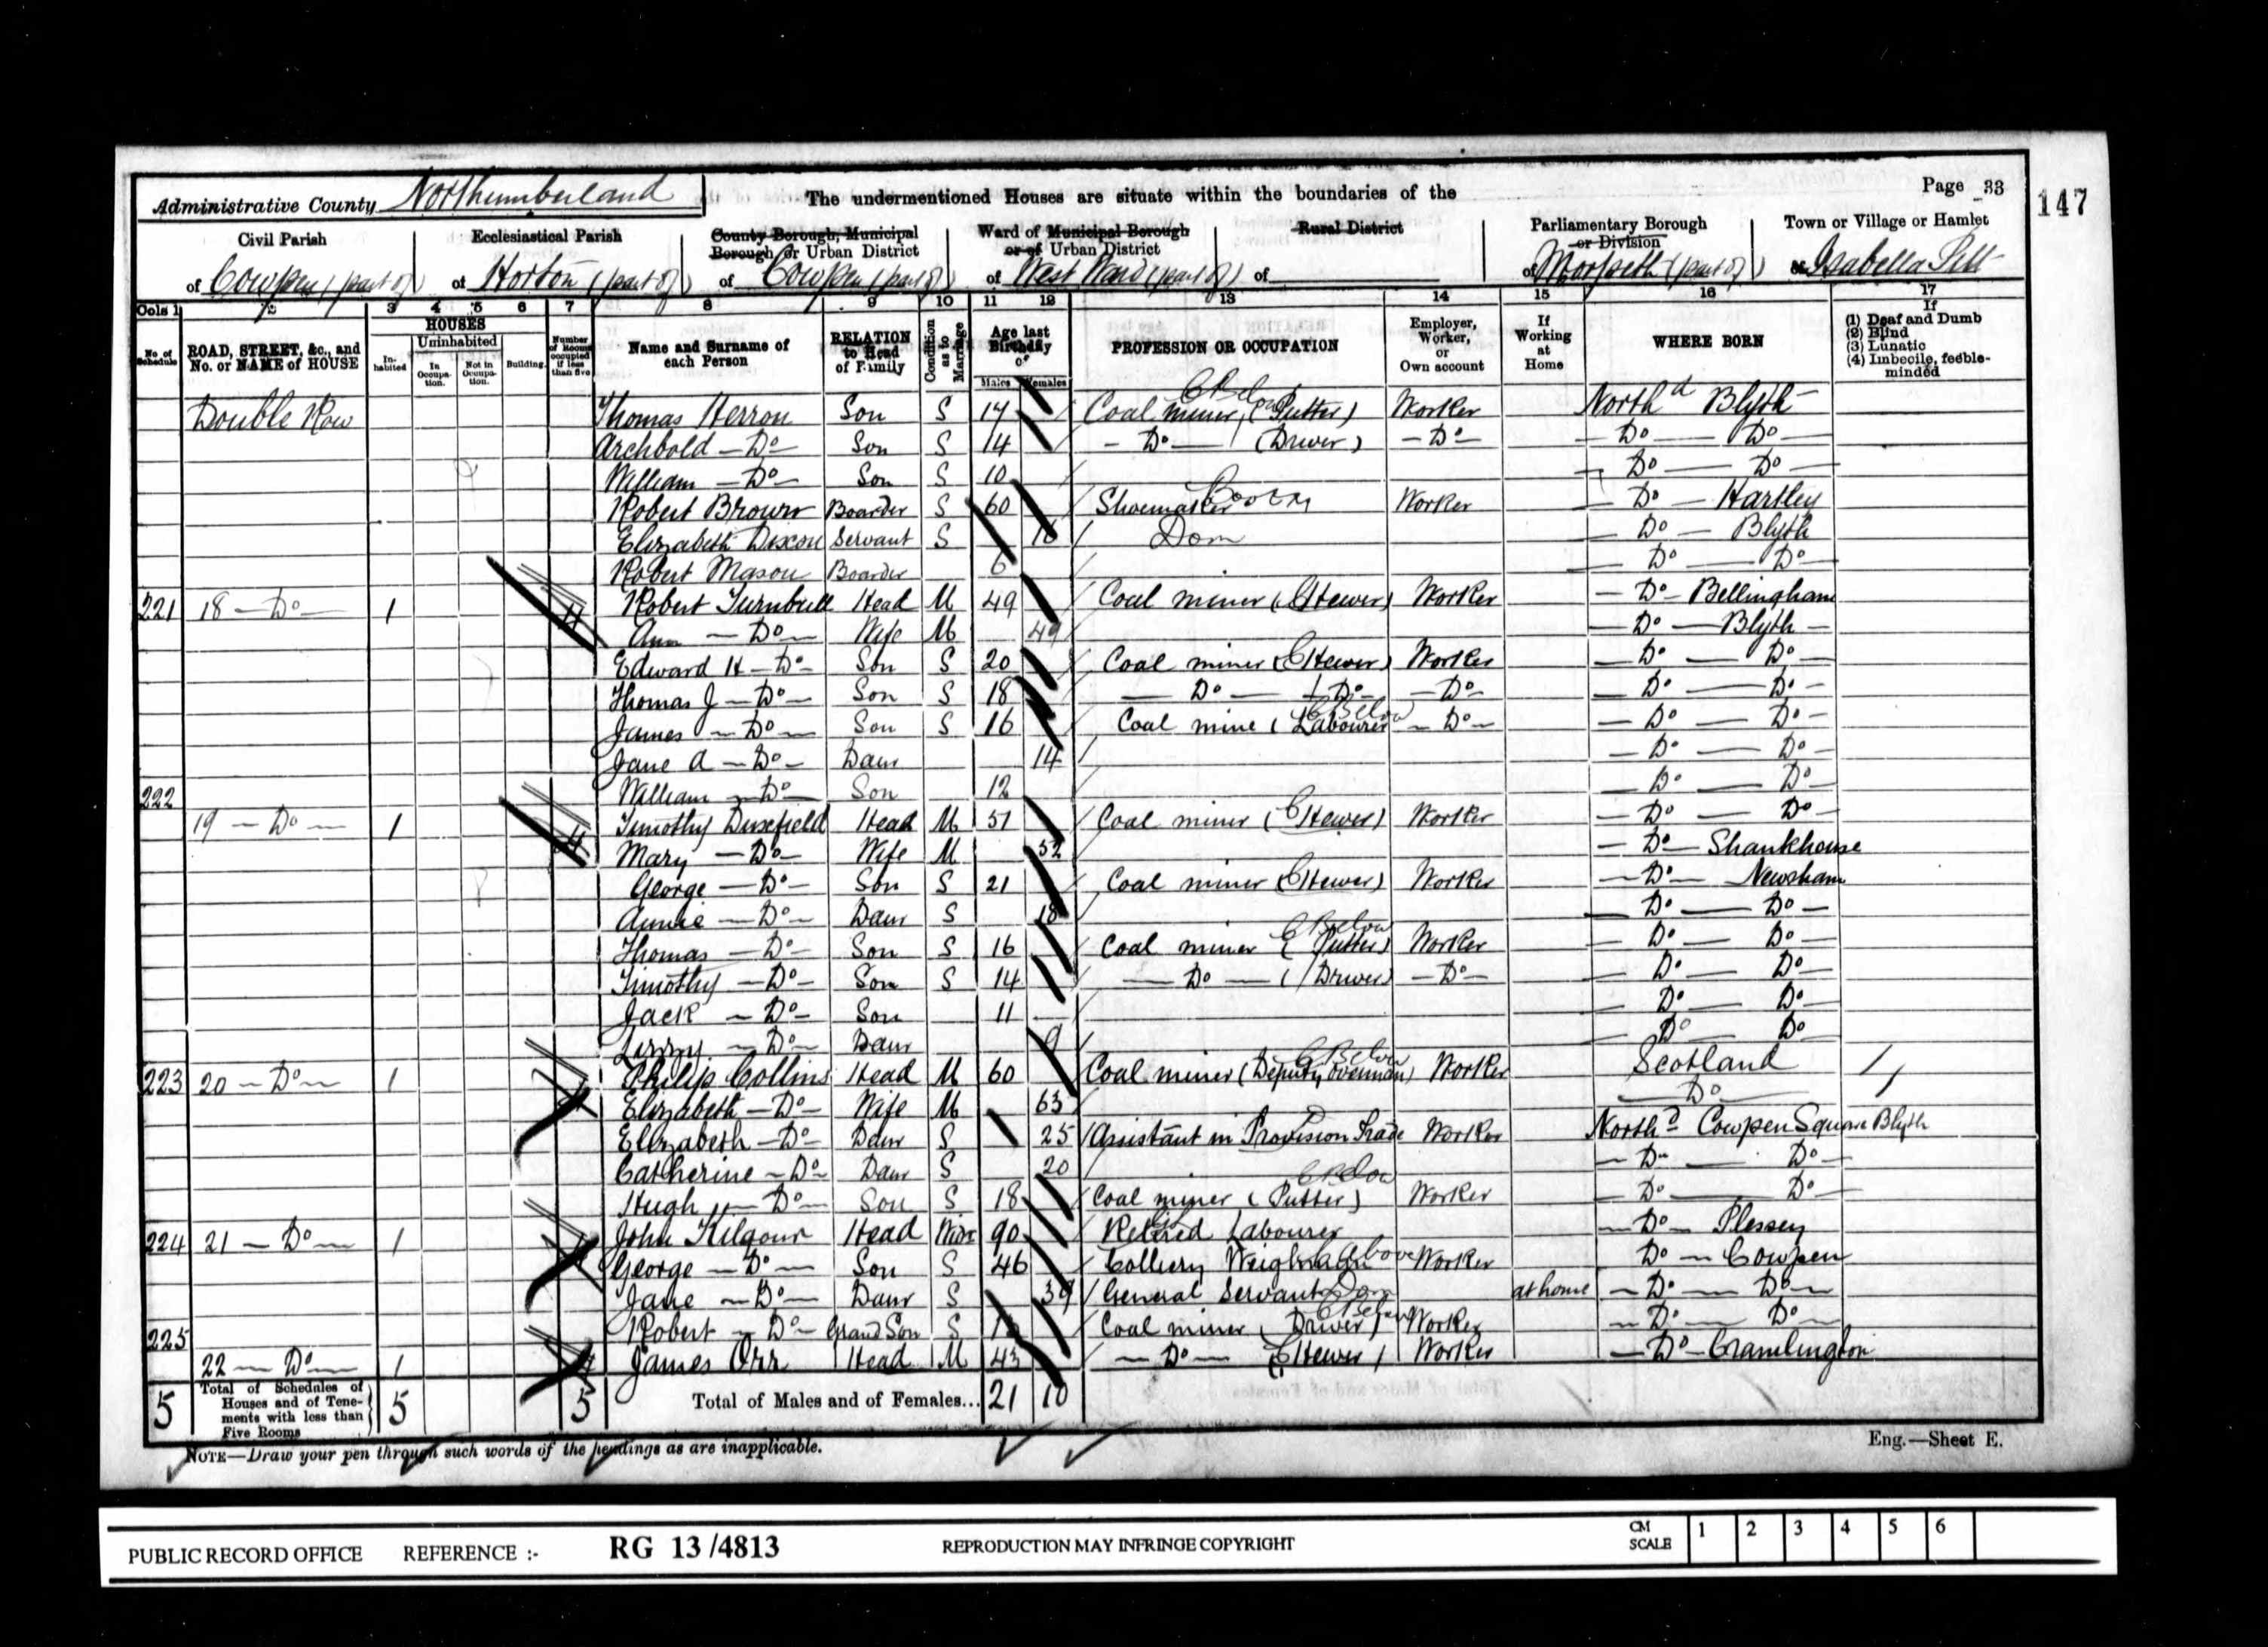 Administrative County Northumberland
The undermentioned Houses are situate within the boundaries of the
Page 33
147
Civil Parish
of Cowpen (part of)
Ecclesiastical Parish
of Horton (part of)
County Borough, Municipal Borough or Urban District
of Cowpen (part of)
Ward of Municipal Borough or of Urban District
of West Ward (part of)
Rural District
of
Parliamentary Borough or Division
of Morpeth (part of)
Town or Village or Hamlet
of Isabella Pitt
Cols 1 2 3 4 5 6 7 8 9 10 11 12 13 14 15 16 17
No. of Schedule
ROAD, STREET, &c., and No. or NAME of HOUSE
HOUSES
Inhabited
Uninhabited
In Occupation.
Not in Occupation.
Building.
Number of Rooms occupied if less than five
Name and Surname of each Person
RELATION to Head of Family
Condition as to Marriage
Age last Birthday of
Males Females
PROFESSION OR OCCUPATION
Employer, Worker, or Own account
If Working at Home
WHERE BORN
If
(1) Deaf and Dumb
(2) Blind
(3) Lunatic
(4) Imbecile, feeble-minded
Double Row Thomas Herron Son S 17 Coal miner (Putter) C Below Worker Northd Blyth
Archbold Do Son S 14 Do (Driver) Do Do Do
William Do Son S 10 Do Do
Robert Brown Boarder S 60 Shoemaker Worker Do Hartley
Elizabeth Dixon Servant S 16 Dom Do Blyth
Robert Mason Boarder 6 Do Do
221 18 Do 1 4 Robert Turnbull Head M 49 Coal miner (Hewer) Worker Do Bellingham
Ann Do Wife M 49 Do Blyth
Edward H Do Son S 20 Coal miner (Hewer) Worker Do Do
Thomas J Do Son S 18 Do Do Do Do Do
James Do Son S 16 Coal mine (Labourer C Below Do Do Do
Jane A Do Daur 14 Do Do
William Do Son 12 Do Do
222 19 Do 1 4 Timothy Dusefield Head M 51 Coal miner (Hewer) Worker Do Do
Mary Do Wife M 52 Do Shankhouse
George Do Son S 21 Coal miner (Hewer) Worker Do Newsham
Annie Do Daur S 18 Do Do
Thomas Do Son S 16 Coal miner (Putter) C Below Worker Do Do
Timothy Do Son S 14 Do (Driver) Do Do Do
Jack Do Son 11 Do Do
Lizzy Do Daur 9 Do Do
223 20 Do 1 4 Philip Collins Head M 60 Coal miner (Deputy Overman) C Below Worker Scotland
Elizabeth Do Wife M 63 Do
Elizabeth Do Daur S 25 Assistant in Provision Trade Worker Northd Cowpen Square Blyth
Catherine Do Daur S 20 Do Do
Hugh Do Son S 18 Coal miner (Putter) C Below Worker Do Do
224 21 Do 1 4 John Kilgour Head Widr 90 Retired Labourer Do Plessey
George Do Son S 46 Colliery Weighman Above Worker Do Cowpen
Jane Do Daur S 39 General Servant Dom at home Do Do
Robert Do Grand Son S Coal miner (Driver) C Below Worker Do Do
225 22 Do 1 4 James Orr Head M 43 Do (Hewer) Worker Do Cramlington
5 Total of Schedules of Houses and of Tenements with less than Five Rooms 5 5 Total of Males and of Females... 21 10
NOTE—Draw your pen through such words of the headings as are inapplicable.
Eng.—Sheet E.
PUBLIC RECORD OFFICE REFERENCE :- RG 13 /4813 REPRODUCTION MAY INFRINGE COPYRIGHT CM SCALE 1 2 3 4 5 6